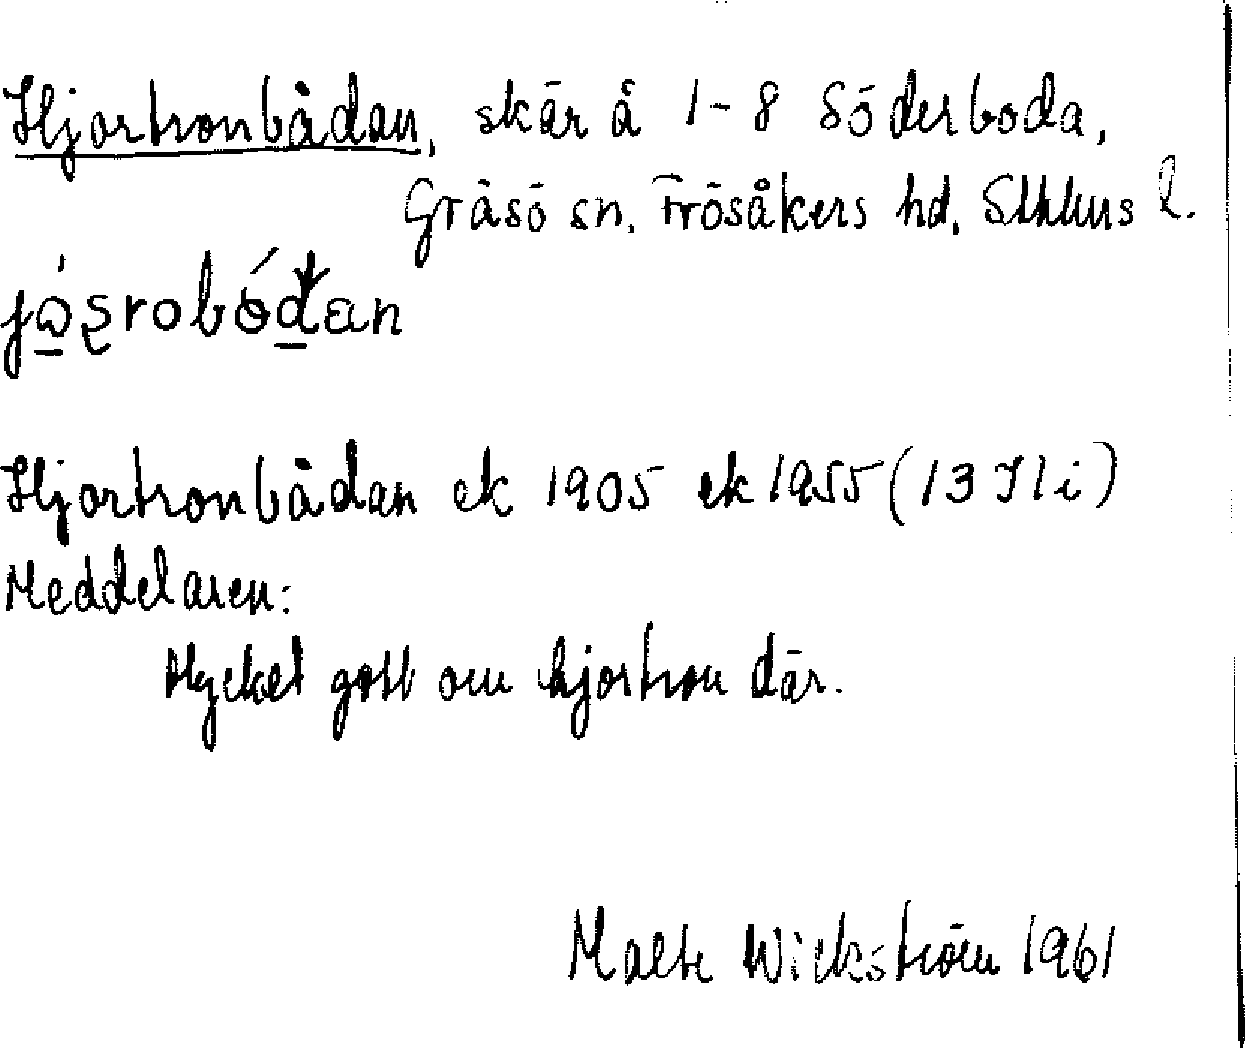 Hjortronbådan, skär å 1-8 Söderboda,
Gräsö sn. Frösåkers hd, Sthlms l.
Hjortronbådan ek 1905 ek 1955 (13 I 1 i)
Meddelaren:
Mycket gott om hjortron där.
Malte Wickström 1961